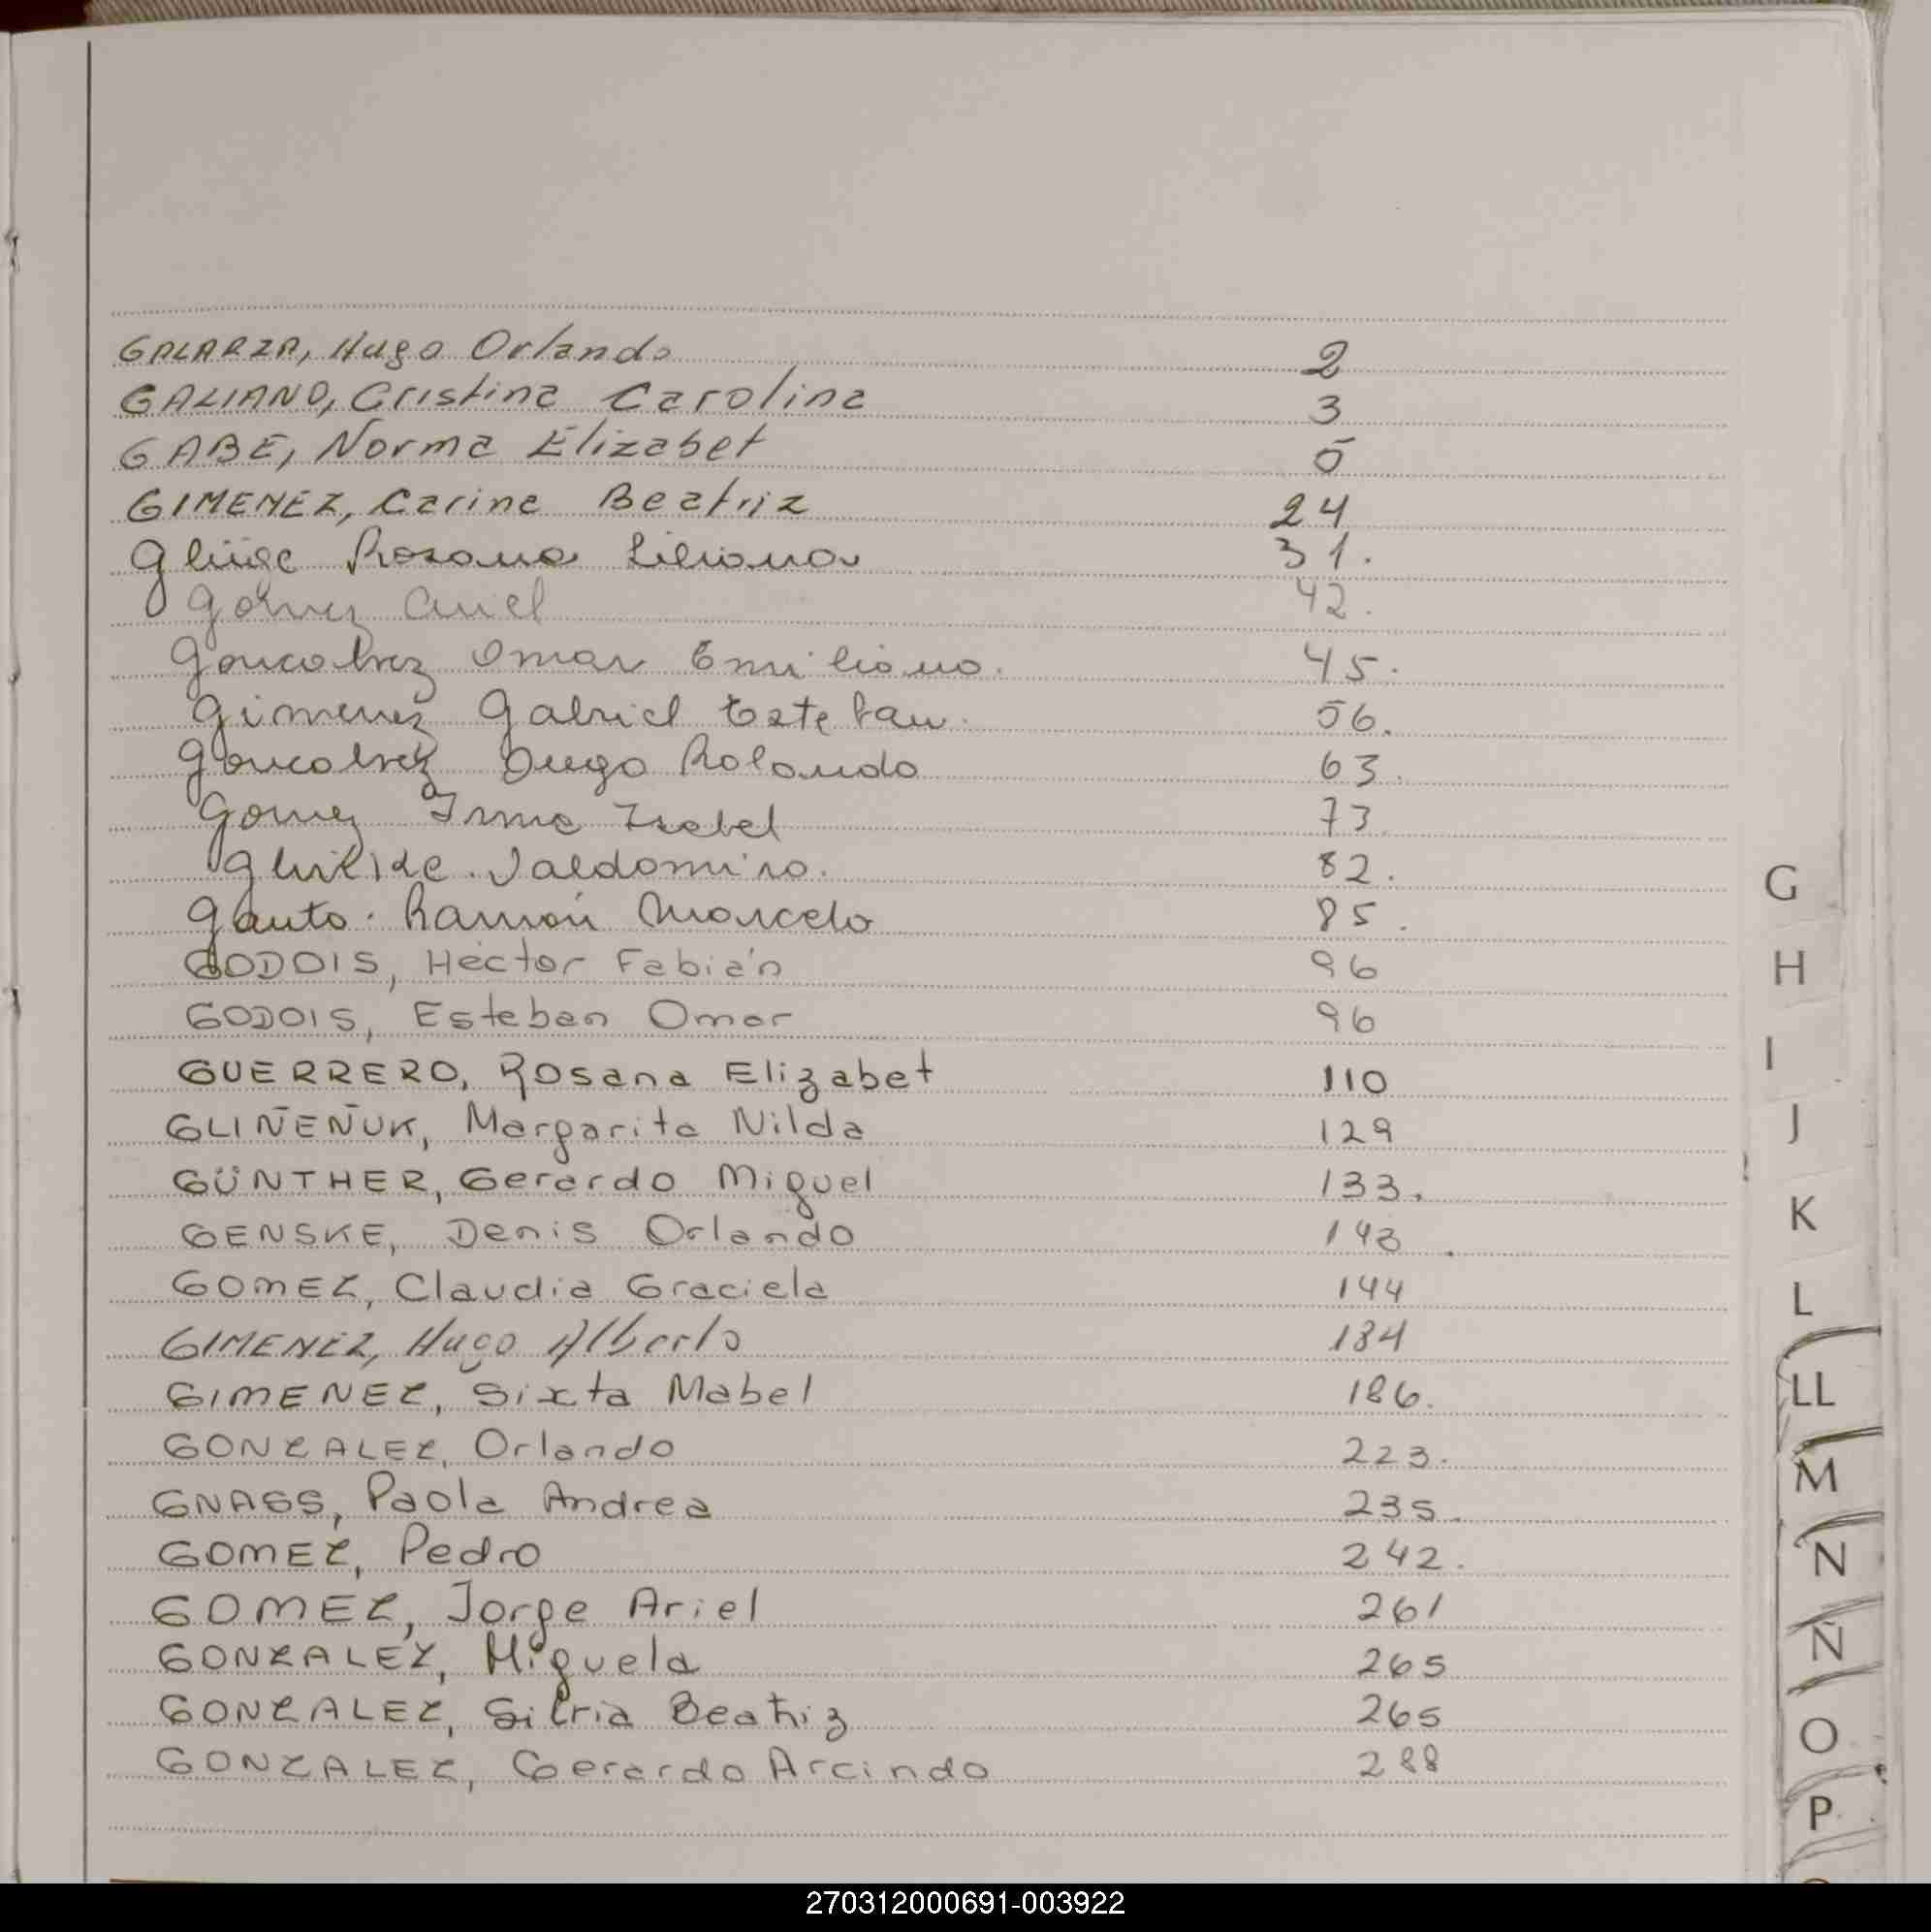 GALARZA, Hugo Orlando 2
GALIANO, Cristina Carolina 3
GABE, Norma Elizabet 5
GIMENEZ, Carina Beatriz 24
Glüge Rosana Liliana 31.
Gomez Ariel 42.
Goncalvez Omar Emiliano. 45.
Gimenez Gabriel Esteban. 56.
Goncalvez Diego Rolando 63.
Gomez Irma Isabel 73.
Valdomiro. 82.
Gauto. Ramón Marcelo 85.
GODOIS, Héctor Fabián 96
GODOIS, Esteban Omar 96
GUERRERO, Rosana Elizabet 110
GLIÑEÑUK, Margarita Nilda 129
GÜNTHER, Gerardo Miguel 133.
GENSKE, Denis Orlando 143.
GOMEZ, Claudia Graciela 144
GIMENEZ, Hugo Alberto 184
GIMENEZ, Sixta Mabel 186.
GONZALEZ, Orlando 223.
GNASS, Paola Andrea 235.
GOMEZ, Pedro 242.
GOMEZ, Jorge Ariel 261
GONZALEZ, Miguela 265
GONZALEZ, Silvia Beatriz 265
GONZALEZ, Gerardo Arcindo 288
G
H
I
J
K
L
LL
M
N
Ñ
O
P
270312000691-003922